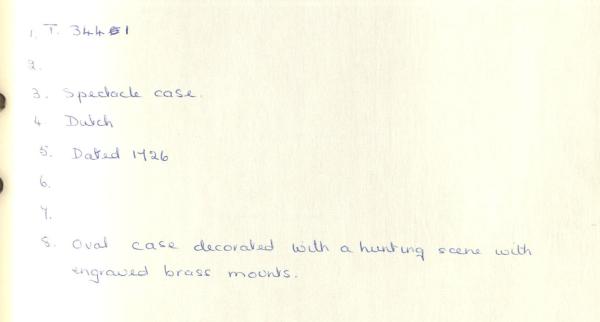 1. T. 3441
2.
3. Spectacle case.
4. Dutch
5. Dated 1726
6.
7.
8. Oval case decorated with a hunting scene with
engraved brass mounts.